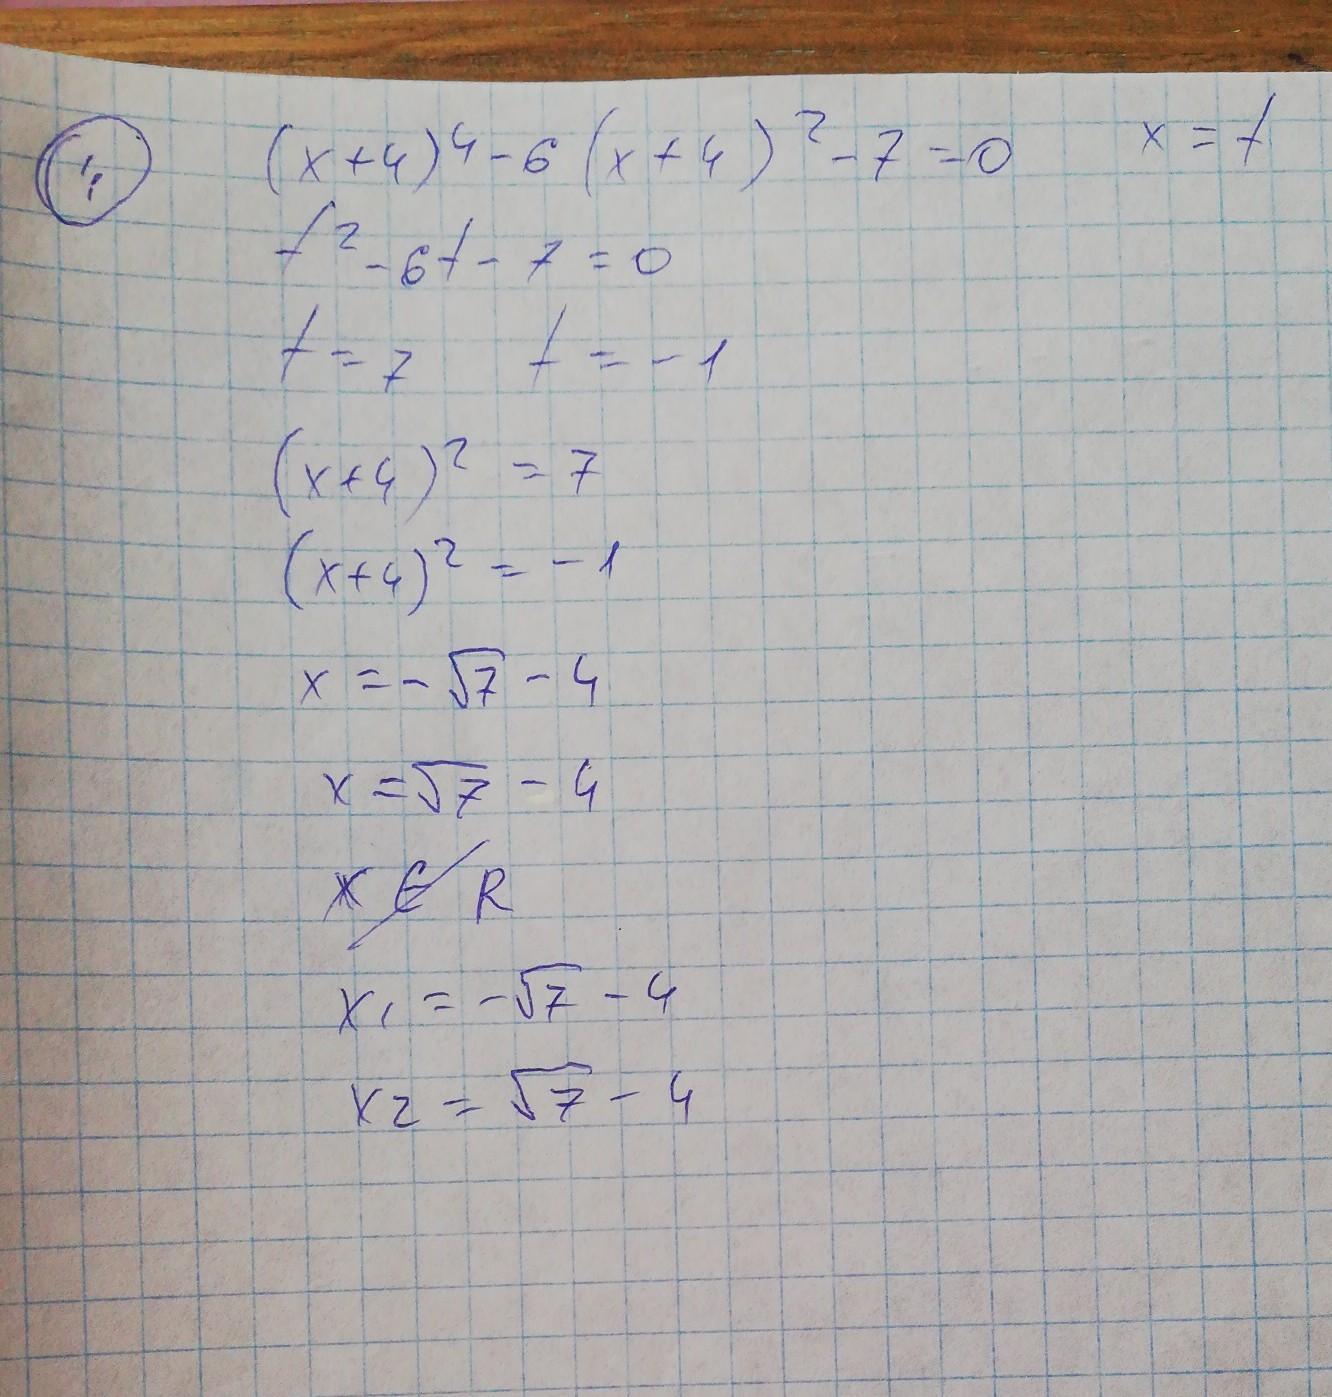 1. (x+4)⁴ - 6(x+4)² - 7 = 0 x = t
t² - 6t - 7 = 0
t = 7 t = -1
(x+4)² = 7
(x+4)² = -1
x = -√7 - 4
x = √7 - 4
x ∉ R
x₁ = -√7 - 4
x₂ = √7 - 4